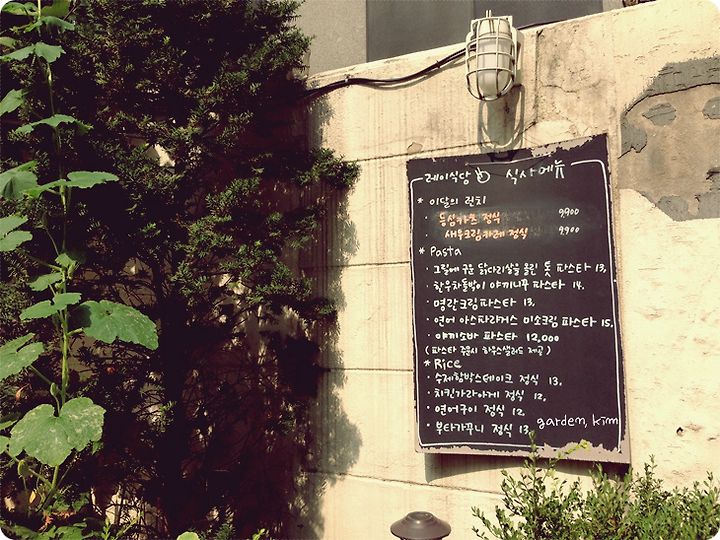 레이식당 식사메뉴
* 이달의 런치
· 등심카츠 정식 9,900
새우크림카레 정식 9,900
* Pasta
· 그릴에 구운 닭다리살을 올린 톳 파스타 13,
· 한우차돌박이 야끼니꾸 파스타 14.
· 명란크림파스타 13,
· 연어 아스파라거스 미소크림 파스타 15,
· 야끼소바 파스타 12,000
(파스타 주문시 하우스샐러드 제공)
* Rice
· 수제함박스테이크 정식 13,
· 치킨가라아게 정식 12,
· 연어구이 정식 12,
· 부타가꾸니 정식 13,
garden, kim